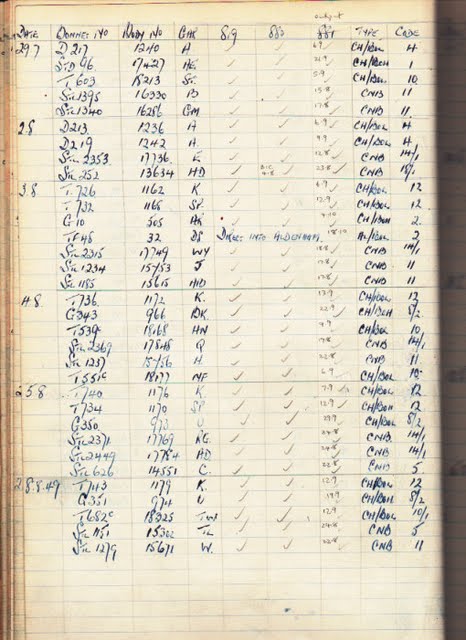 DATE BONNET NO BODY NO GAR S/9 output TYPE CODE
29.7 D 217 1240 A ✓ ✓ 6.9 CH/BOW 4
STD 96 17427 ✓ ✓ 21.9 CH/BOH 1
T 603 18213 ✓ ✓ CH/BOW 10
STL 1395 16330 ✓ ✓ 15.8 CNB 11
STL 1340 16286 GM ✓ ✓ 17.8 CNB 11
2.8 D213 1236 A ✓ ✓ 6.9 CH/BOW 4
D219 1242 A ✓ ✓ 9.9 CH/BOW 4
STL 2353 17736 E ✓ ✓ 12.8 CNB 14/1
STL 252 13634 HD ✓ ✓ 23.8 CNB
3.8 T 726 1162 K ✓ ✓ 6.9 CH/BOW 12
T 732 1168 SP ✓ ✓ 12.9 CH/BOW 12
G 10 505 ✓ ✓ CH/BOH 2
TF 48 32 DS DIRECT INTO ALDENHAM 18.10 2
STL 2315 17749 WY ✓ ✓ CNB 14/1
STL 1234 15153 J ✓ ✓ CNB 11
STL 1185 15615 HD ✓ ✓ CNB 11
4.8 T736 1172 K ✓ ✓ 13.9 CH/BOW 12
G343 966 ✓ ✓ 22.9 CH/BOH 8/2
T539 1868 HN ✓ ✓ CH/BOW 10
STL 2369 17848 Q ✓ ✓ CNB 14/1
STL 1237 15156 H ✓ ✓ 22.8 CNB 11
T551 18177 NF ✓ ✓ 6.9 CH/BOW 10
25.8 T740 1176 K ✓ ✓ 7.9 CH/BOW 12
T734 1170 SP ✓ ✓ 12.9 CH/BOH 12
G350 973 U ✓ ✓ CH/BOW 8/2
STL 2371 17769 ✓ ✓ 24.8 CNB 14/1
STL 2449 17784 AD ✓ ✓ 24.8 CNB 14/1
STL 626 14551 C. ✓ ✓ 22.8 CNB 5
28.8.49 T743 1179 K. ✓ ✓ 12.9 CH/BOW 12
G351 974 U ✓ ✓ CH/BOH 8/2
T682 18325 ✓ ✓ 12.9 CH/BOW 10/1
STL 1151 15302 TL ✓ ✓ 24.8 CNB 5
STL 1279 15671 W. ✓ ✓ 22.8 CNB 11